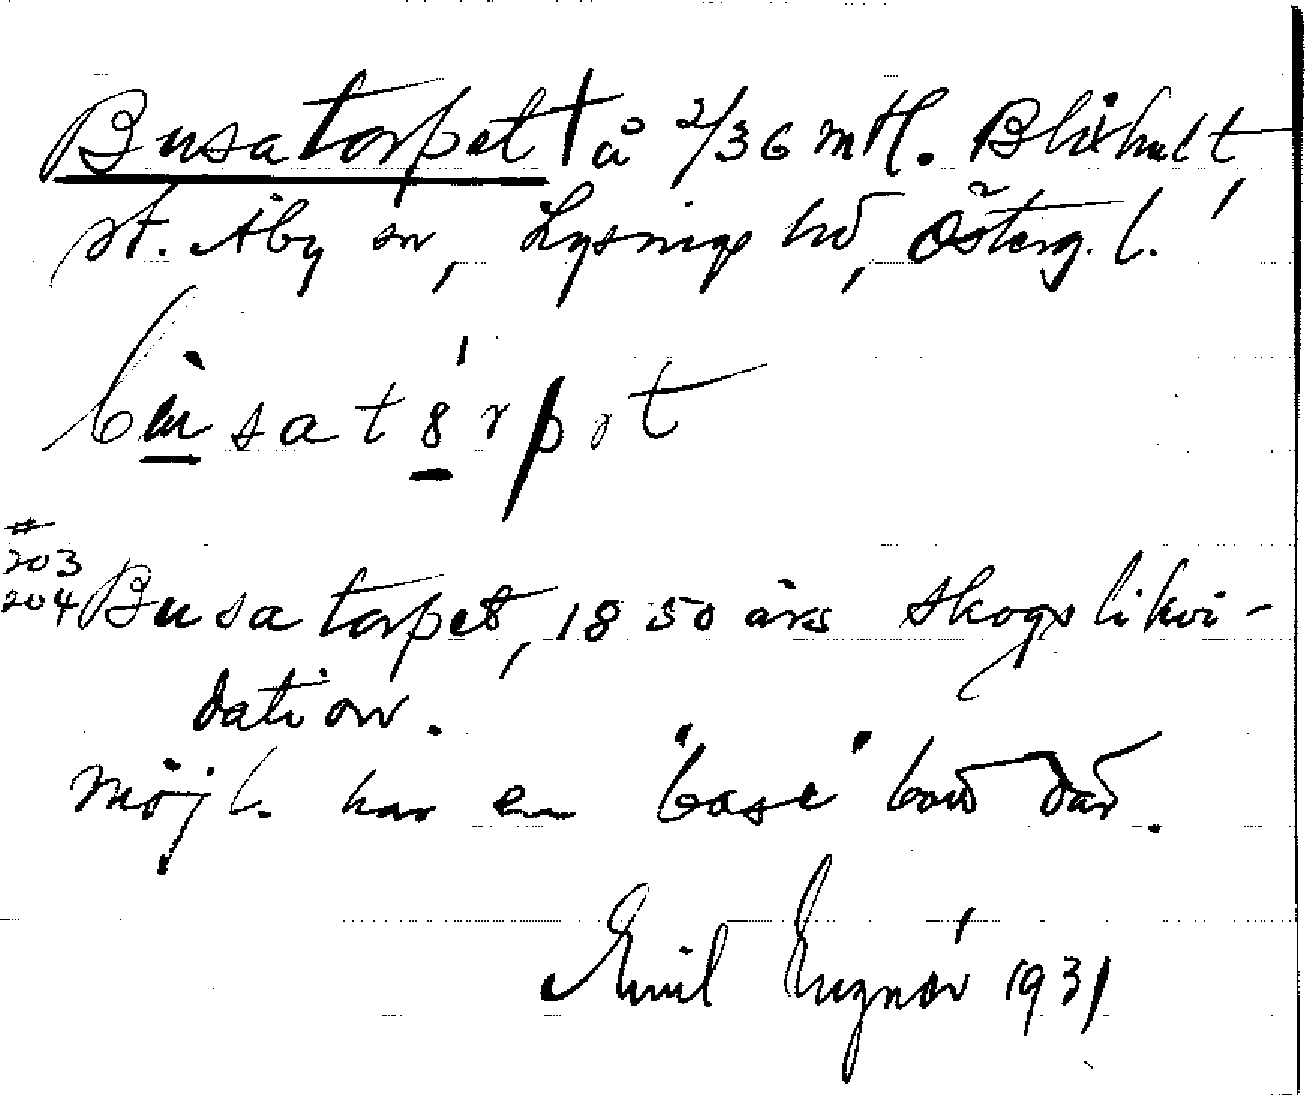 Busatorpet † å 2/36 mtl. Blixhult,
St. Åby sn, Lysings hd, Österg. l.
sat8rp
#
203
204 Busatorpet, 1850 års skogslikvi-
dation.
Möjl. har en "base" bott där.
Emil 1931